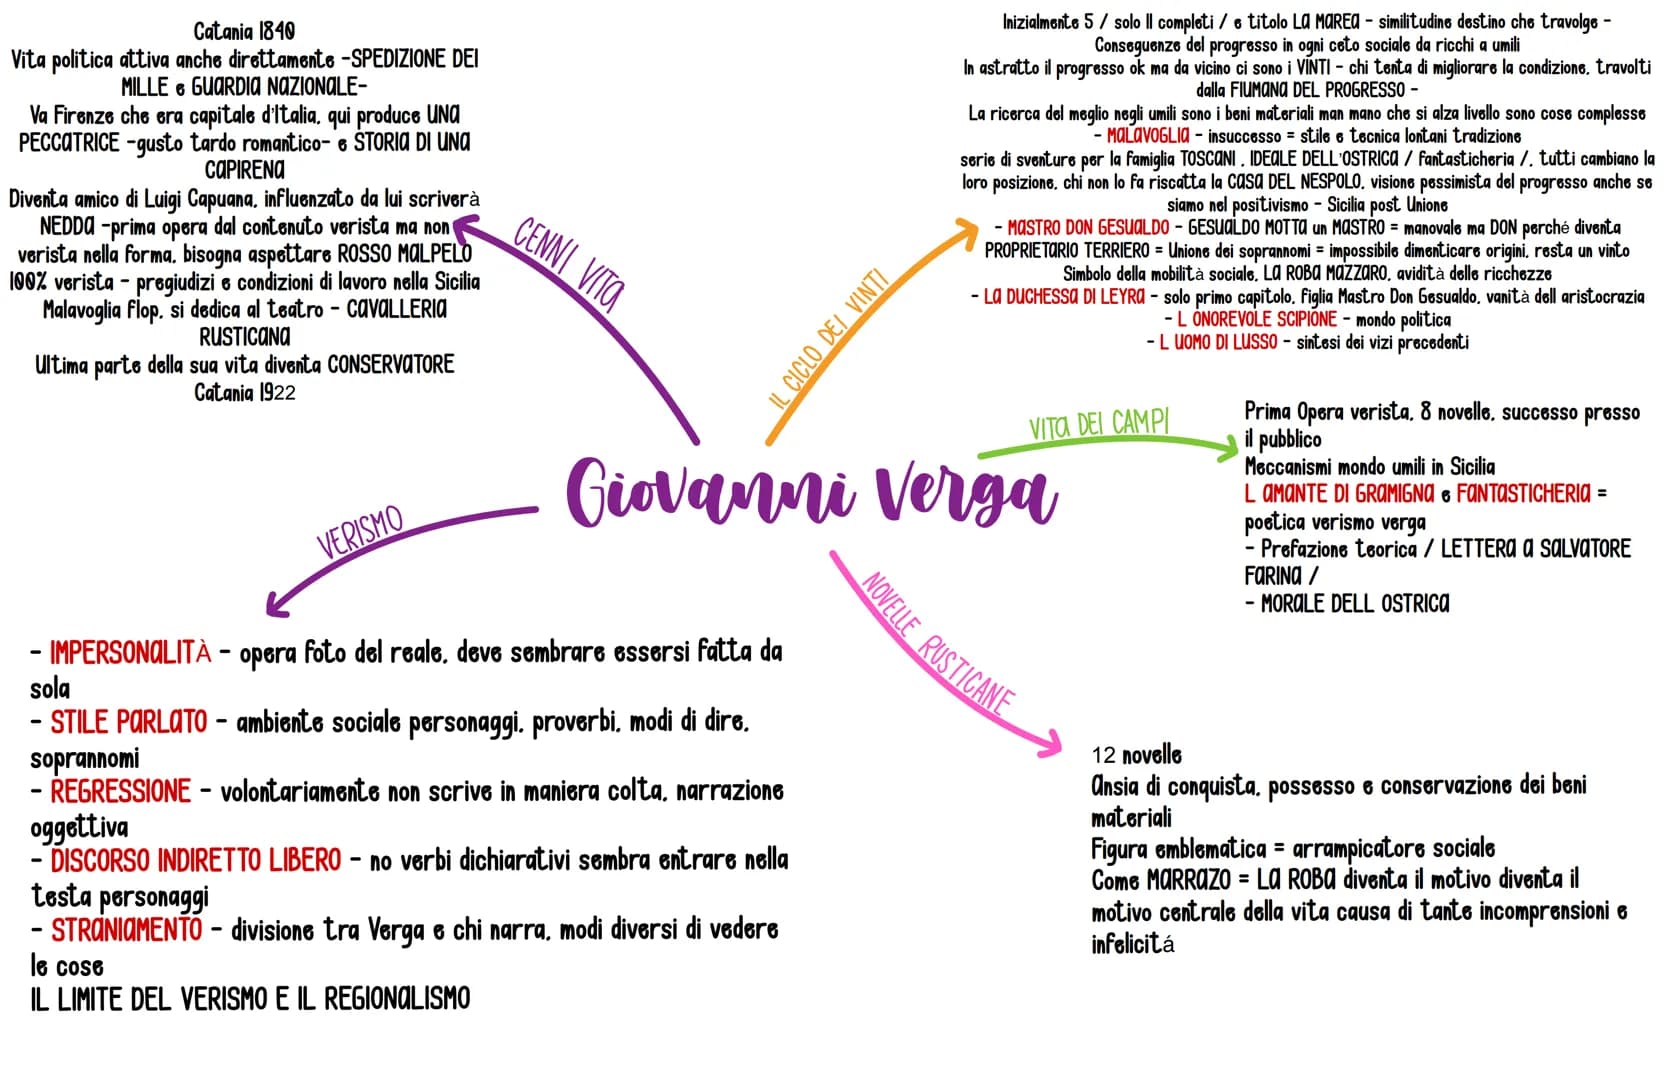 Catania 1840
Vita politica attiva anche direttamente -SPEDIZIONE DEI
MILLE e GUARDIA NAZIONALE-
Va Firenze che era capitale d'Italia, qui produce UNA
PECCATRICE -gusto tardo romantico- e STORIA DI UNA
CAPIRENA
Diventa amico di Luigi Capuana, influenzato da lui scriverà
NEDDA -prima opera dal contenuto verista ma non
verista nella forma, bisogna aspettare ROSSO MALPELO
100% verista - pregiudizi e condizioni di lavoro nella Sicilia
Malavoglia flop, si dedica al teatro - CAVALLERIA
RUSTICANA
Ultima parte della sua vita diventa CONSERVATORE
Catania 1922
CENNI VITA
Inizialmente 5 / solo II completi / e titolo LA MAREA - similitudine destino che travolge -
Conseguenze del progresso in ogni ceto sociale da ricchi a umili
In astratto il progresso ok ma da vicino ci sono i VINTI - chi tenta di migliorare la condizione, travolti
dalla FIUMANA DEL PROGRESSO -
La ricerca del meglio negli umili sono i beni materiali man mano che si alza livello sono cose complesse
- MALAVOGLIA - insuccesso = stile e tecnica lontani tradizione
serie di sventure per la famiglia TOSCANI , IDEALE DELL'OSTRICA / fantasticheria /, tutti cambiano la
loro posizione, chi non lo fa riscatta la CASA DEL NESPOLO, visione pessimista del progresso anche se
siamo nel positivismo - Sicilia post Unione
- MASTRO DON GESUALDO - GESUALDO MOTTA un MASTRO = manovale ma DON perché diventa
PROPRIETARIO TERRIERO = Unione dei soprannomi = impossibile dimenticare origini, resta un vinto
Simbolo della mobilità sociale, LA ROBA MAZZARO, avidità delle ricchezze
- LA DUCHESSA DI LEYRA - solo primo capitolo, figlia Mastro Don Gesualdo, vanità dell aristocrazia
- L ONOREVOLE SCIPIONE - mondo politica
- L UOMO DI LUSSO - sintesi dei vizi precedenti
IL CICLO DEI VINTI
VITA DEI CAMPI
Prima Opera verista, 8 novelle, successo presso
il pubblico
Meccanismi mondo umili in Sicilia
L AMANTE DI GRAMIGNA e FANTASTICHERIA =
poetica verismo verga
- Prefazione teorica / LETTERA A SALVATORE
FARINA /
- MORALE DELL OSTRICA
Giovanni Verga
VERISMO
- IMPERSONALITÀ - opera foto del reale, deve sembrare essersi fatta da
sola
- STILE PARLATO - ambiente sociale personaggi, proverbi, modi di dire,
soprannomi
- REGRESSIONE - volontariamente non scrive in maniera colta, narrazione
oggettiva
- DISCORSO INDIRETTO LIBERO - no verbi dichiarativi sembra entrare nella
testa personaggi
- STRANIAMENTO - divisione tra Verga e chi narra, modi diversi di vedere
le cose
IL LIMITE DEL VERISMO E IL REGIONALISMO
NOVELLE RUSTICANE
12 novelle
Ansia di conquista, possesso e conservazione dei beni
materiali
Figura emblematica = arrampicatore sociale
Come MARRAZO = LA ROBA diventa il motivo diventa il
motivo centrale della vita causa di tante incomprensioni e
infelicitá